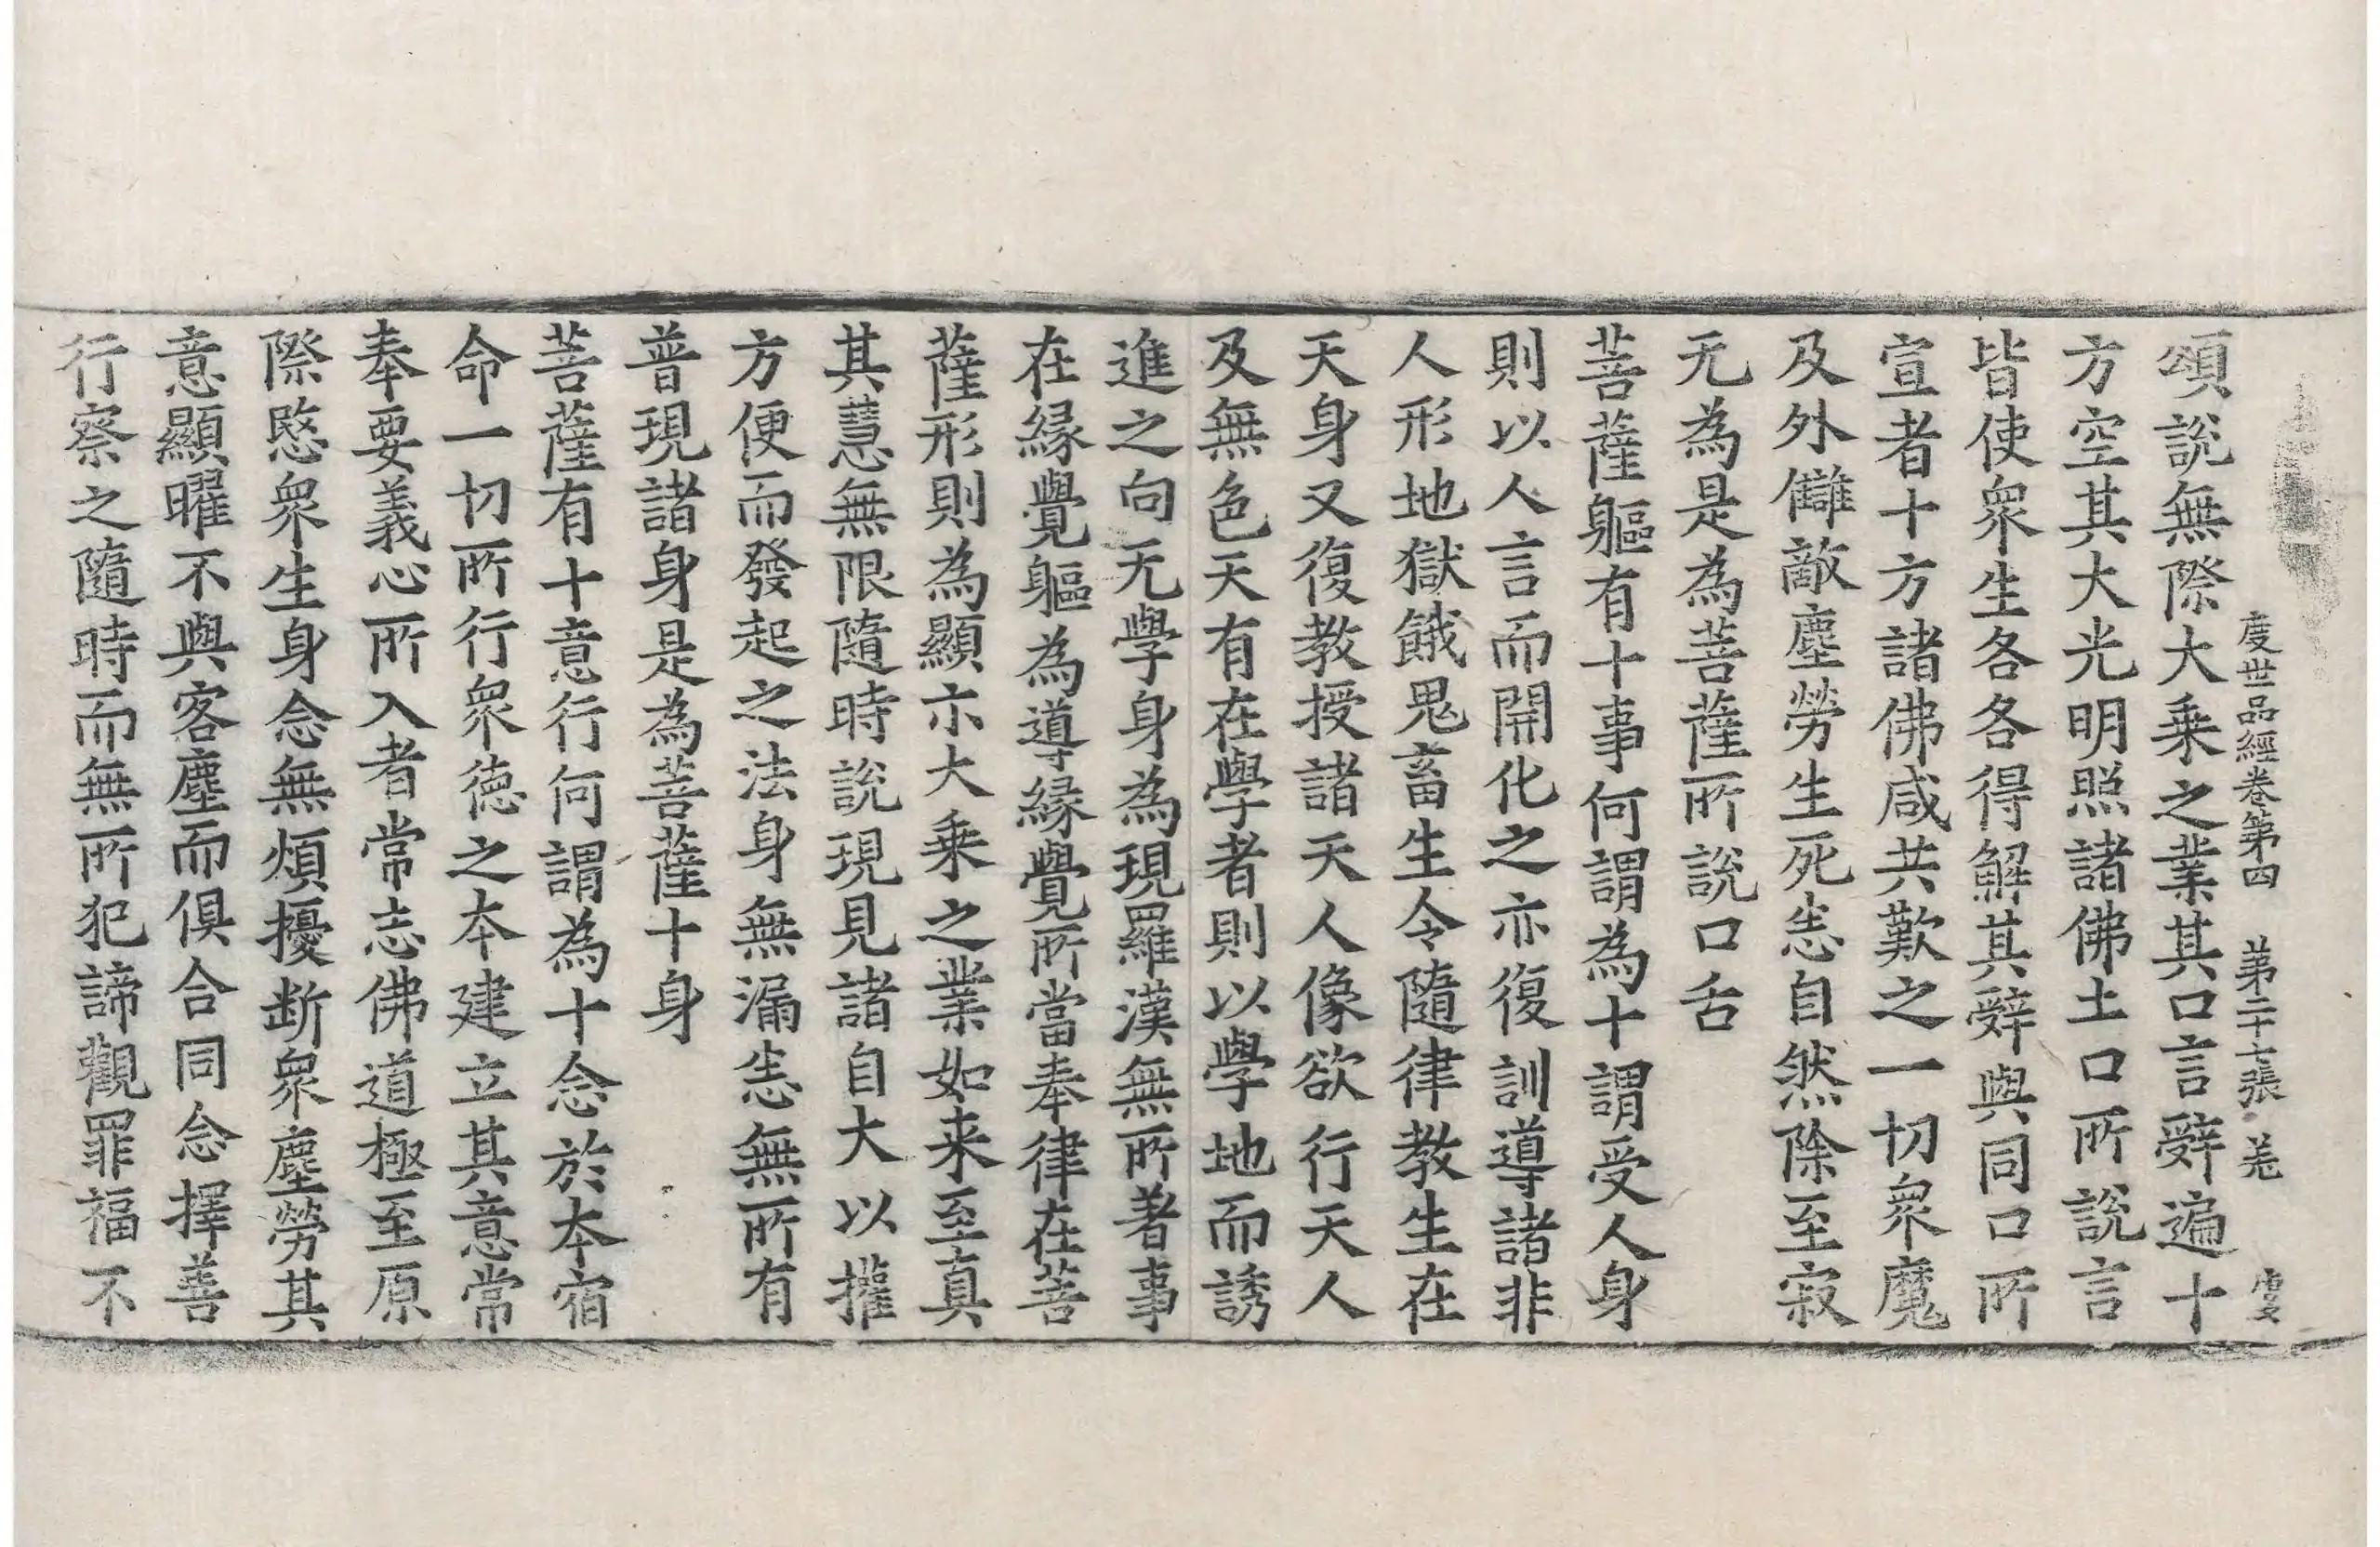 度世品經卷第四　第二十七張　羌　虔
頌說無際大乘之業其口言辭遍十
方空其大光明照諸佛土口所說言
皆使眾生各各得解其辭與同口所
宣者十方諸佛咸共歎之一切眾魔
及外讎敵塵勞生死恙自然除至寂
无為是為菩薩所說口舌
菩薩軀有十事何謂為十謂受人身
則以人言而開化之亦復訓導諸非
人形地獄餓鬼畜生令隨律教生在
天身又復教授諸天人像欲行天人
及無色天有在學者則以學地而誘
進之向无學身為現羅漢無所著事
在緣覺軀為導緣覺所當奉律在菩
薩形則為顯示大乘之業如来至真
其慧無限隨時說現見諸自大以權
方便而發起之法身無漏恙無所有
普現諸身是為菩薩十身
菩薩有十意行何謂為十念於本宿
命一切所行眾德之本建立其意常
奉要義心所入者常志佛道極至原
際愍眾生身念無煩擾断眾塵勞其
意顯曜不與客塵而俱合同念擇善
行察之隨時而無所犯諦觀罪福不